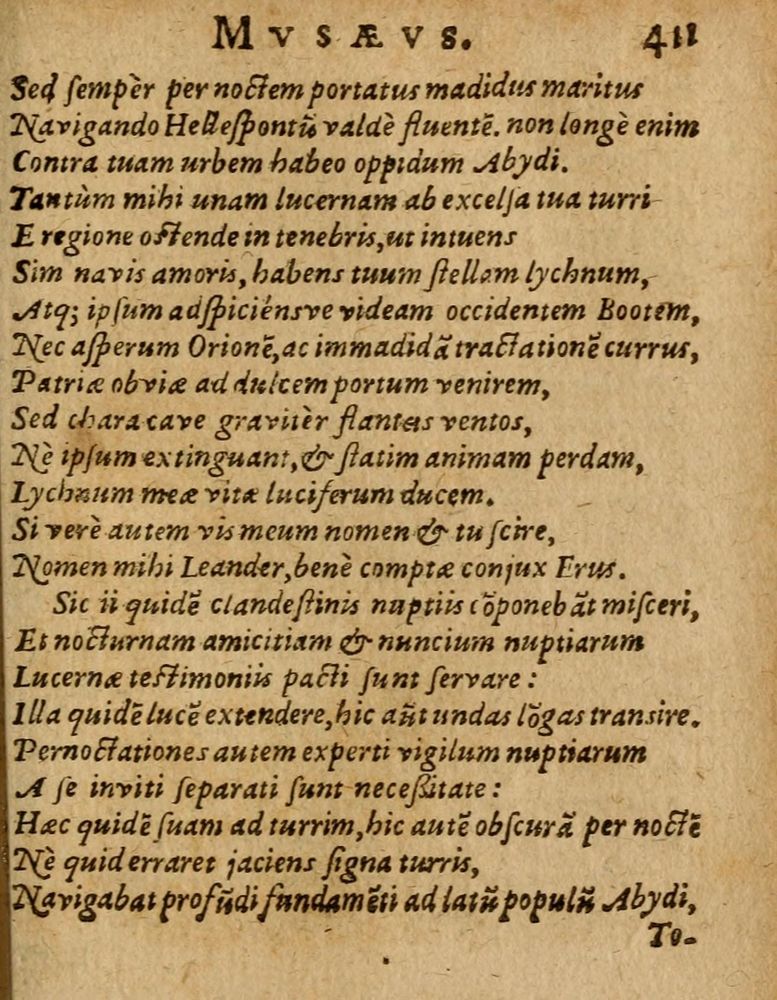 MVSÆVS. 411
Sed ſempèr per noctem portatus madidus maritus
Navigando Helleſpontũ valdè fluentẽ. non longè enim
Contra tuam urbem habeo oppidum Abydi.
Tantùm mihi unam lucernam ab excelſa tua turri
E regione oſtende in tenebris, ut intuens
Sim navis amoris, habens tuum ſtellam lychnum,
Atq; ipſum adſpiciénsve videam occidentem Bootem,
Nec aſperum Orionẽ, ac immadidã tractationẽ currus,
Patriæ obviæ ad dulcem portum venirem,
Sed chara cave gravitèr flantes ventos,
Nè ipſum extinguant, & ſtatim animam perdam,
Lychnum meæ vitæ luciferum ducem.
Si verè autem vis meum nomen & tu ſcire,
Nomen mihi Leander, benè comptæ conjux Erus.
Sic ii quidẽ clandeſtinis nuptiis cõponebãt miſceri,
Et nocturnam amicitiam & nuncium nuptiarum
Lucernæ teſtimoniis pacti ſunt ſervare:
Illa quidẽ lucẽ extendere, hic aũt undas lõgas transire.
Pernoctationes autem experti vigilum nuptiarum
A ſe inviti ſeparati ſunt neceſſitate:
Hæc quidẽ ſuam ad turrim, hic autẽ obſcurã per noctẽ
Nè quid erraret jaciens ſigna turris,
Navigabat profũdi fundamẽti ad latũ populũ Abydi,
To-